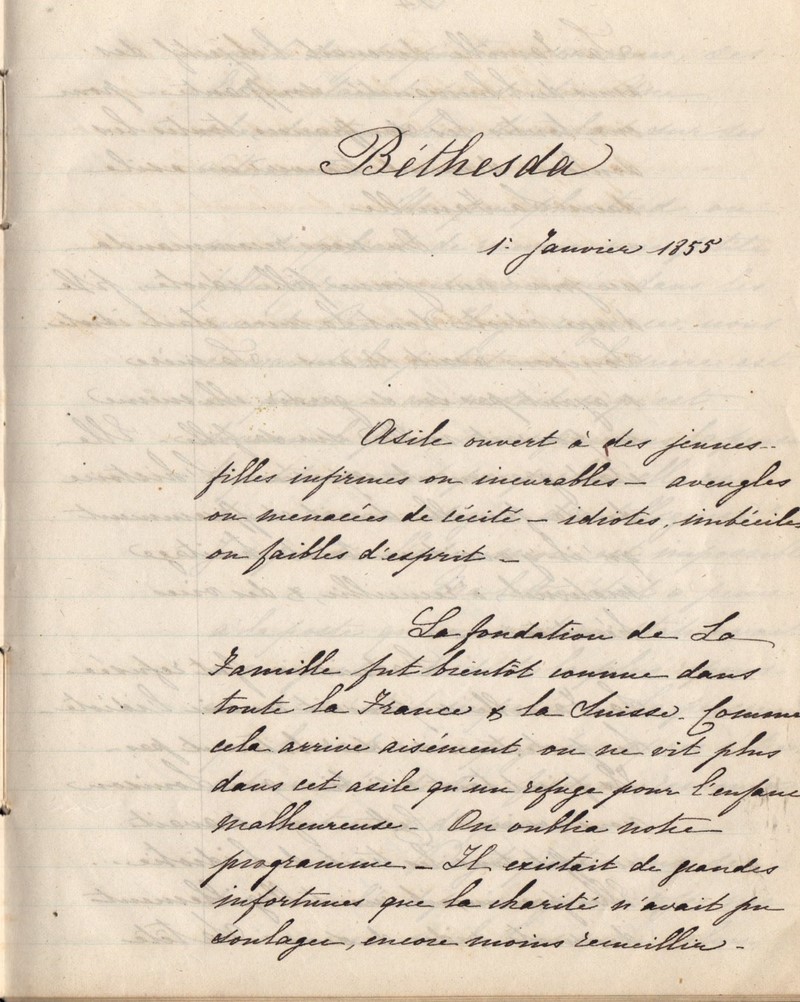 Béthesda
1r Janvier 1855
Asile ouvert à des jeunes-
filles infirmes ou incurables – aveugles
ou menacées de cécité – idiotes, imbéciles
ou faibles d'esprit –
La fondation de La
Famille fut bientôt connue dans
toute la France & la Suisse. Comme
cela arrive aisément on ne vit plus
dans cet asile qu'un refuge pour l'enfance
malheureuse – On oublia notre
programme – Il existait de grandes
infortunes que la charité n'avait pu
soulager, encore moins recueillir –